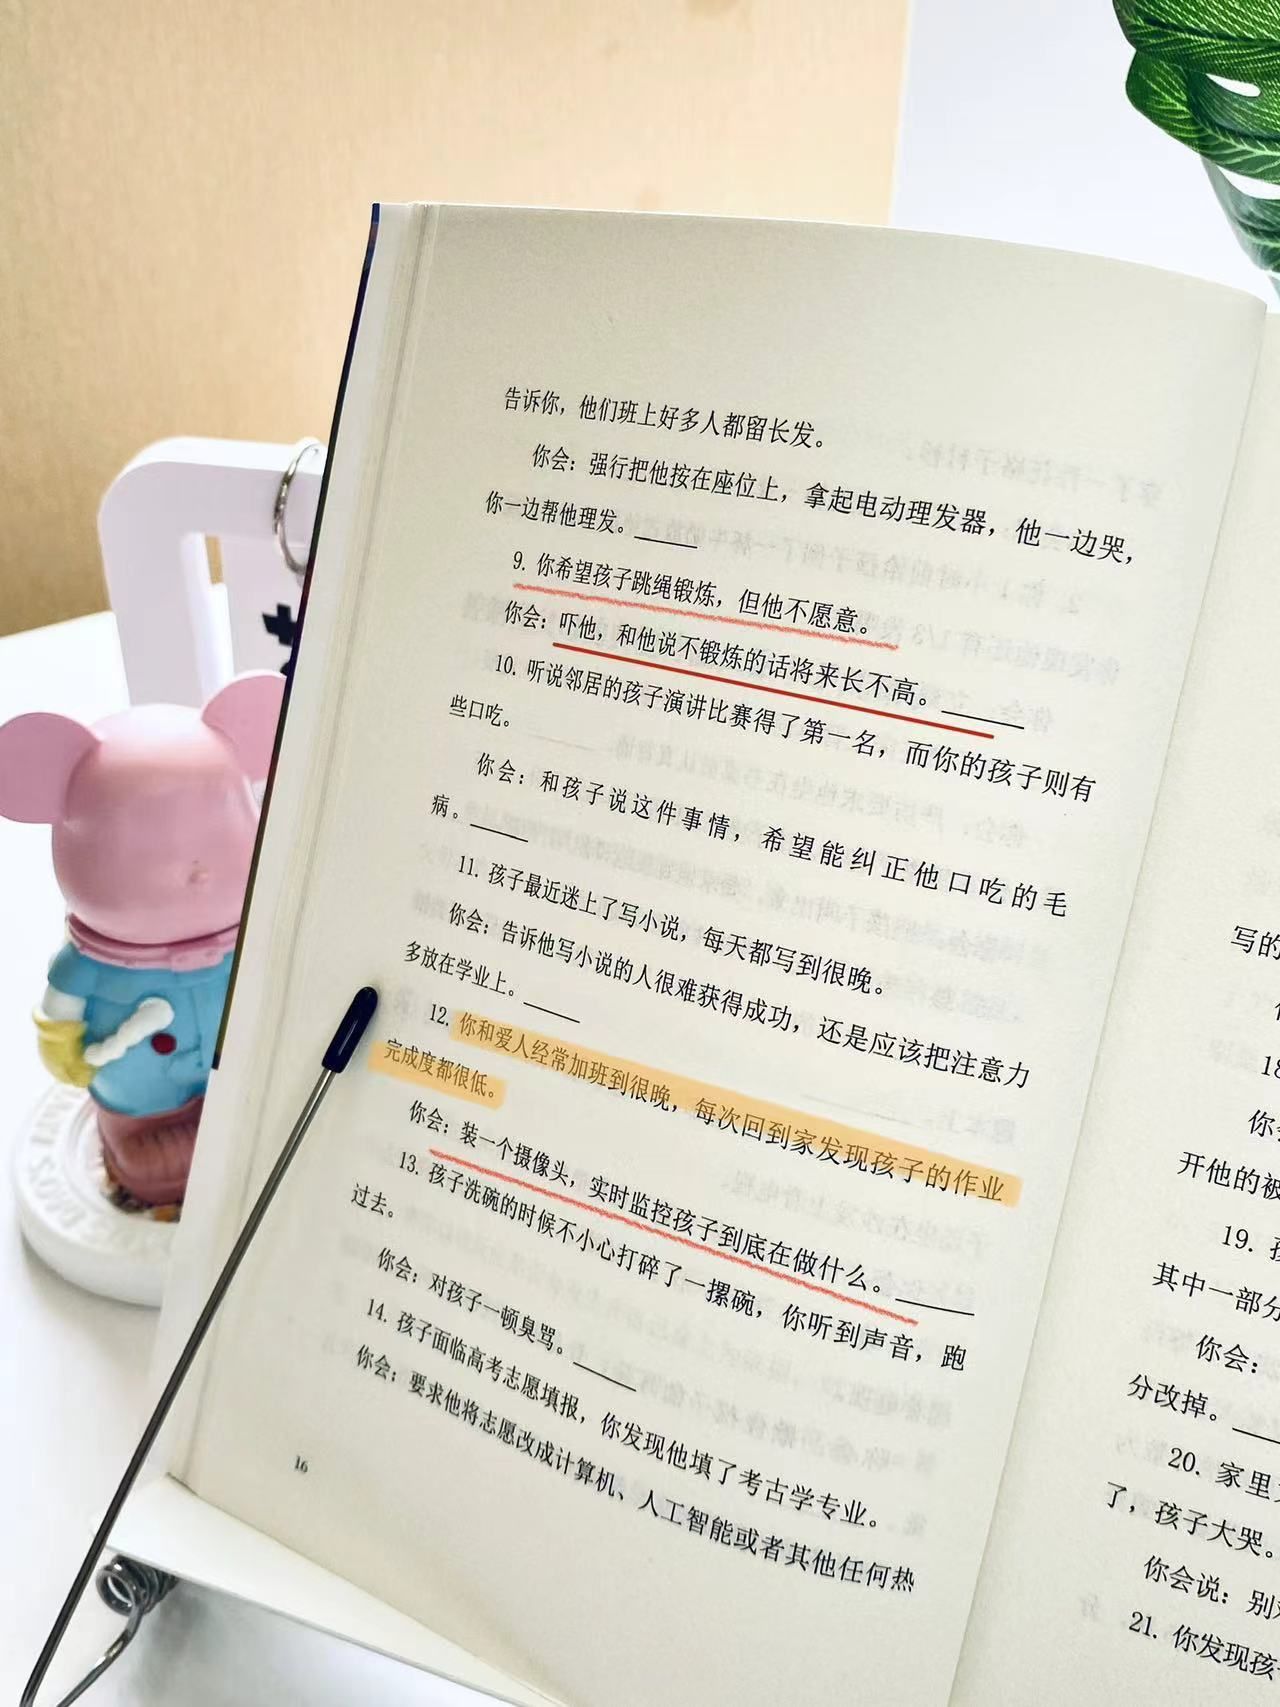 告诉你，他们班上好多人都留长发。
你会：强行把他按在座位上，拿起电动理发器，他一边哭，
你一边帮他理发。______
9. 你希望孩子跳绳锻炼，但他不愿意。
你会：吓他，和他说不锻炼的话将来长不高。______
10. 听说邻居的孩子演讲比赛得了第一名，而你的孩子则有
些口吃。
你会：和孩子说这件事情，希望能纠正他口吃的毛
病。______
11. 孩子最近迷上了写小说，每天都写到很晚。
你会：告诉他写小说的人很难获得成功，还是应该把注意力
多放在学业上。______
12. 你和爱人经常加班到很晚，每次回到家发现孩子的作业
完成度都很低。
你会：装一个摄像头，实时监控孩子到底在做什么。______
13. 孩子洗碗的时候不小心打碎了一摞碗，你听到声音，跑
过去。
你会：对孩子一顿臭骂。______
14. 孩子面临高考志愿填报，你发现他填了考古学专业。
你会：要求他将志愿改成计算机、人工智能或者其他任何热
16
写的
18
你
开他的被
19.
其中一部分
你会：
分改掉。
20. 家里
了，孩子大哭。
你会说：别
21. 你发现孩